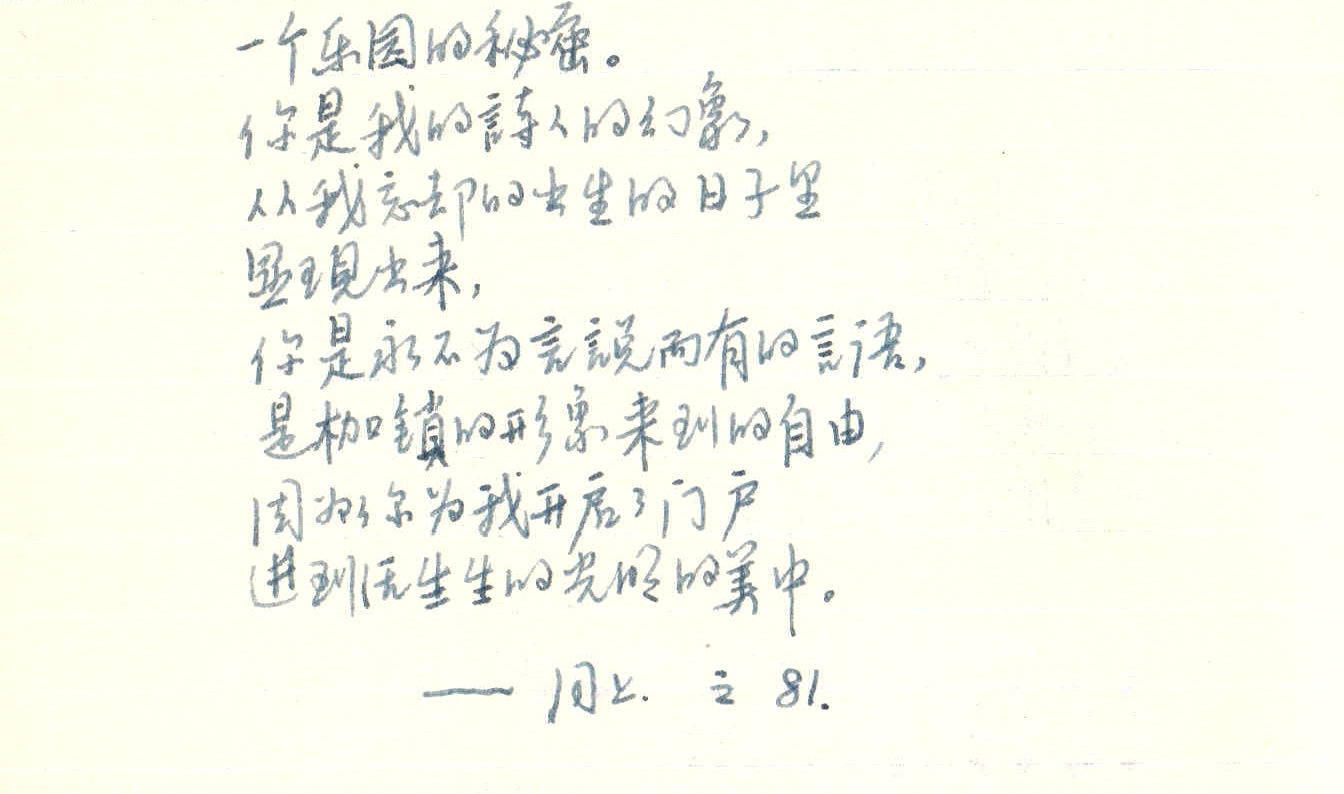 一个乐园的秘密。
你是我的詩人的幻象,
从我忘却的出生的日子里
显現出来,
你是永不为言説而有的言语,
是枷鎖的形象来到的自由,
因为你为我开启了门户
进到活生生的光明的美中。
—— 同上. 之 81.